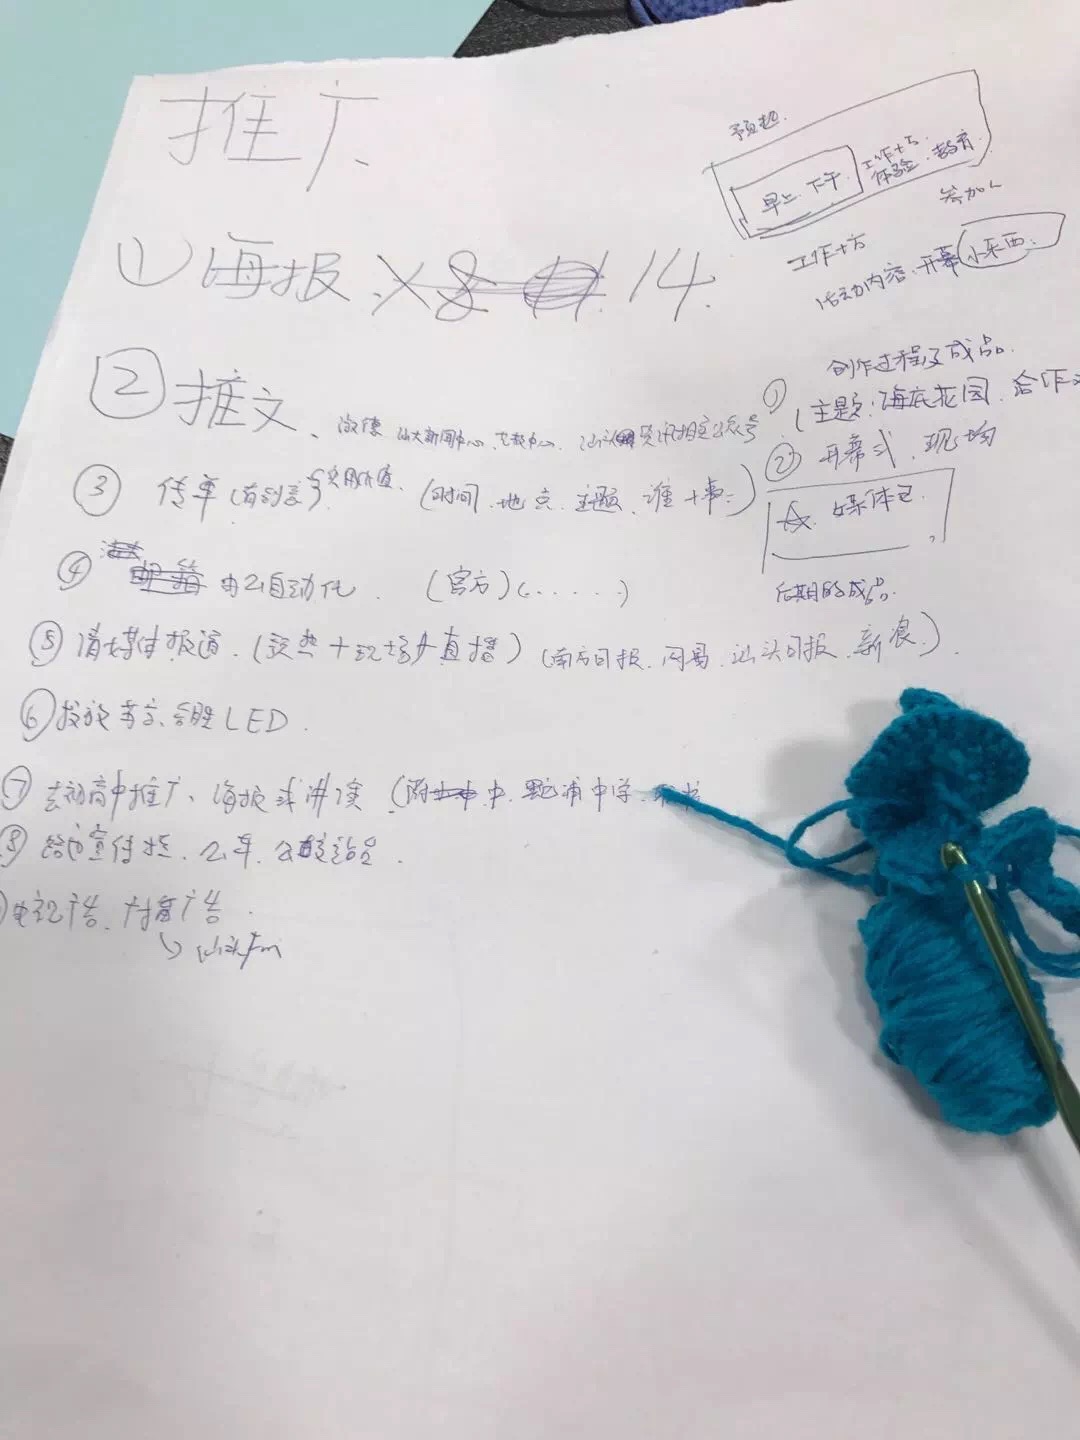 推广
① 海报 ×8 14.
② 推文、微信 汕大新闻中心
③ 传单(有创意 实用价值. (时间、地点、主题、谁+事=)
④ 办公自动化. (官方)(......)
⑤ 请媒体报道. (预热+现场+直播)(南方日报、网易、汕头日报、新浪.)
⑥ 投放 LED.
⑦ 去初高中推广、海报或讲演 (附中、鮀浦中学
⑧ 宣传栏、公车、公交站台.
电视广告、广播广告.
汕头fm
预热.
早上 下午
工作坊 体验、教育
参加
工作坊
活动内容、开幕 小东西.
① 创作过程及成品.
(主题:海底花园、合作
② 开幕式、现场
☆ 媒体
后期的成品.